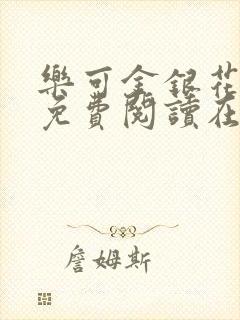 樂可金銀花
免費閱讀在
詹姆斯